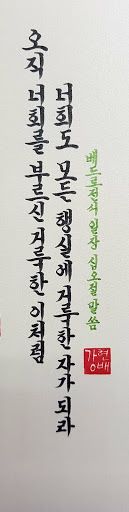 오직 너희를 부르신 거룩한 이처럼
너희도 모든 행실에 거룩한 자가 되라
베드로전서 일장 십오절 말씀
강현배